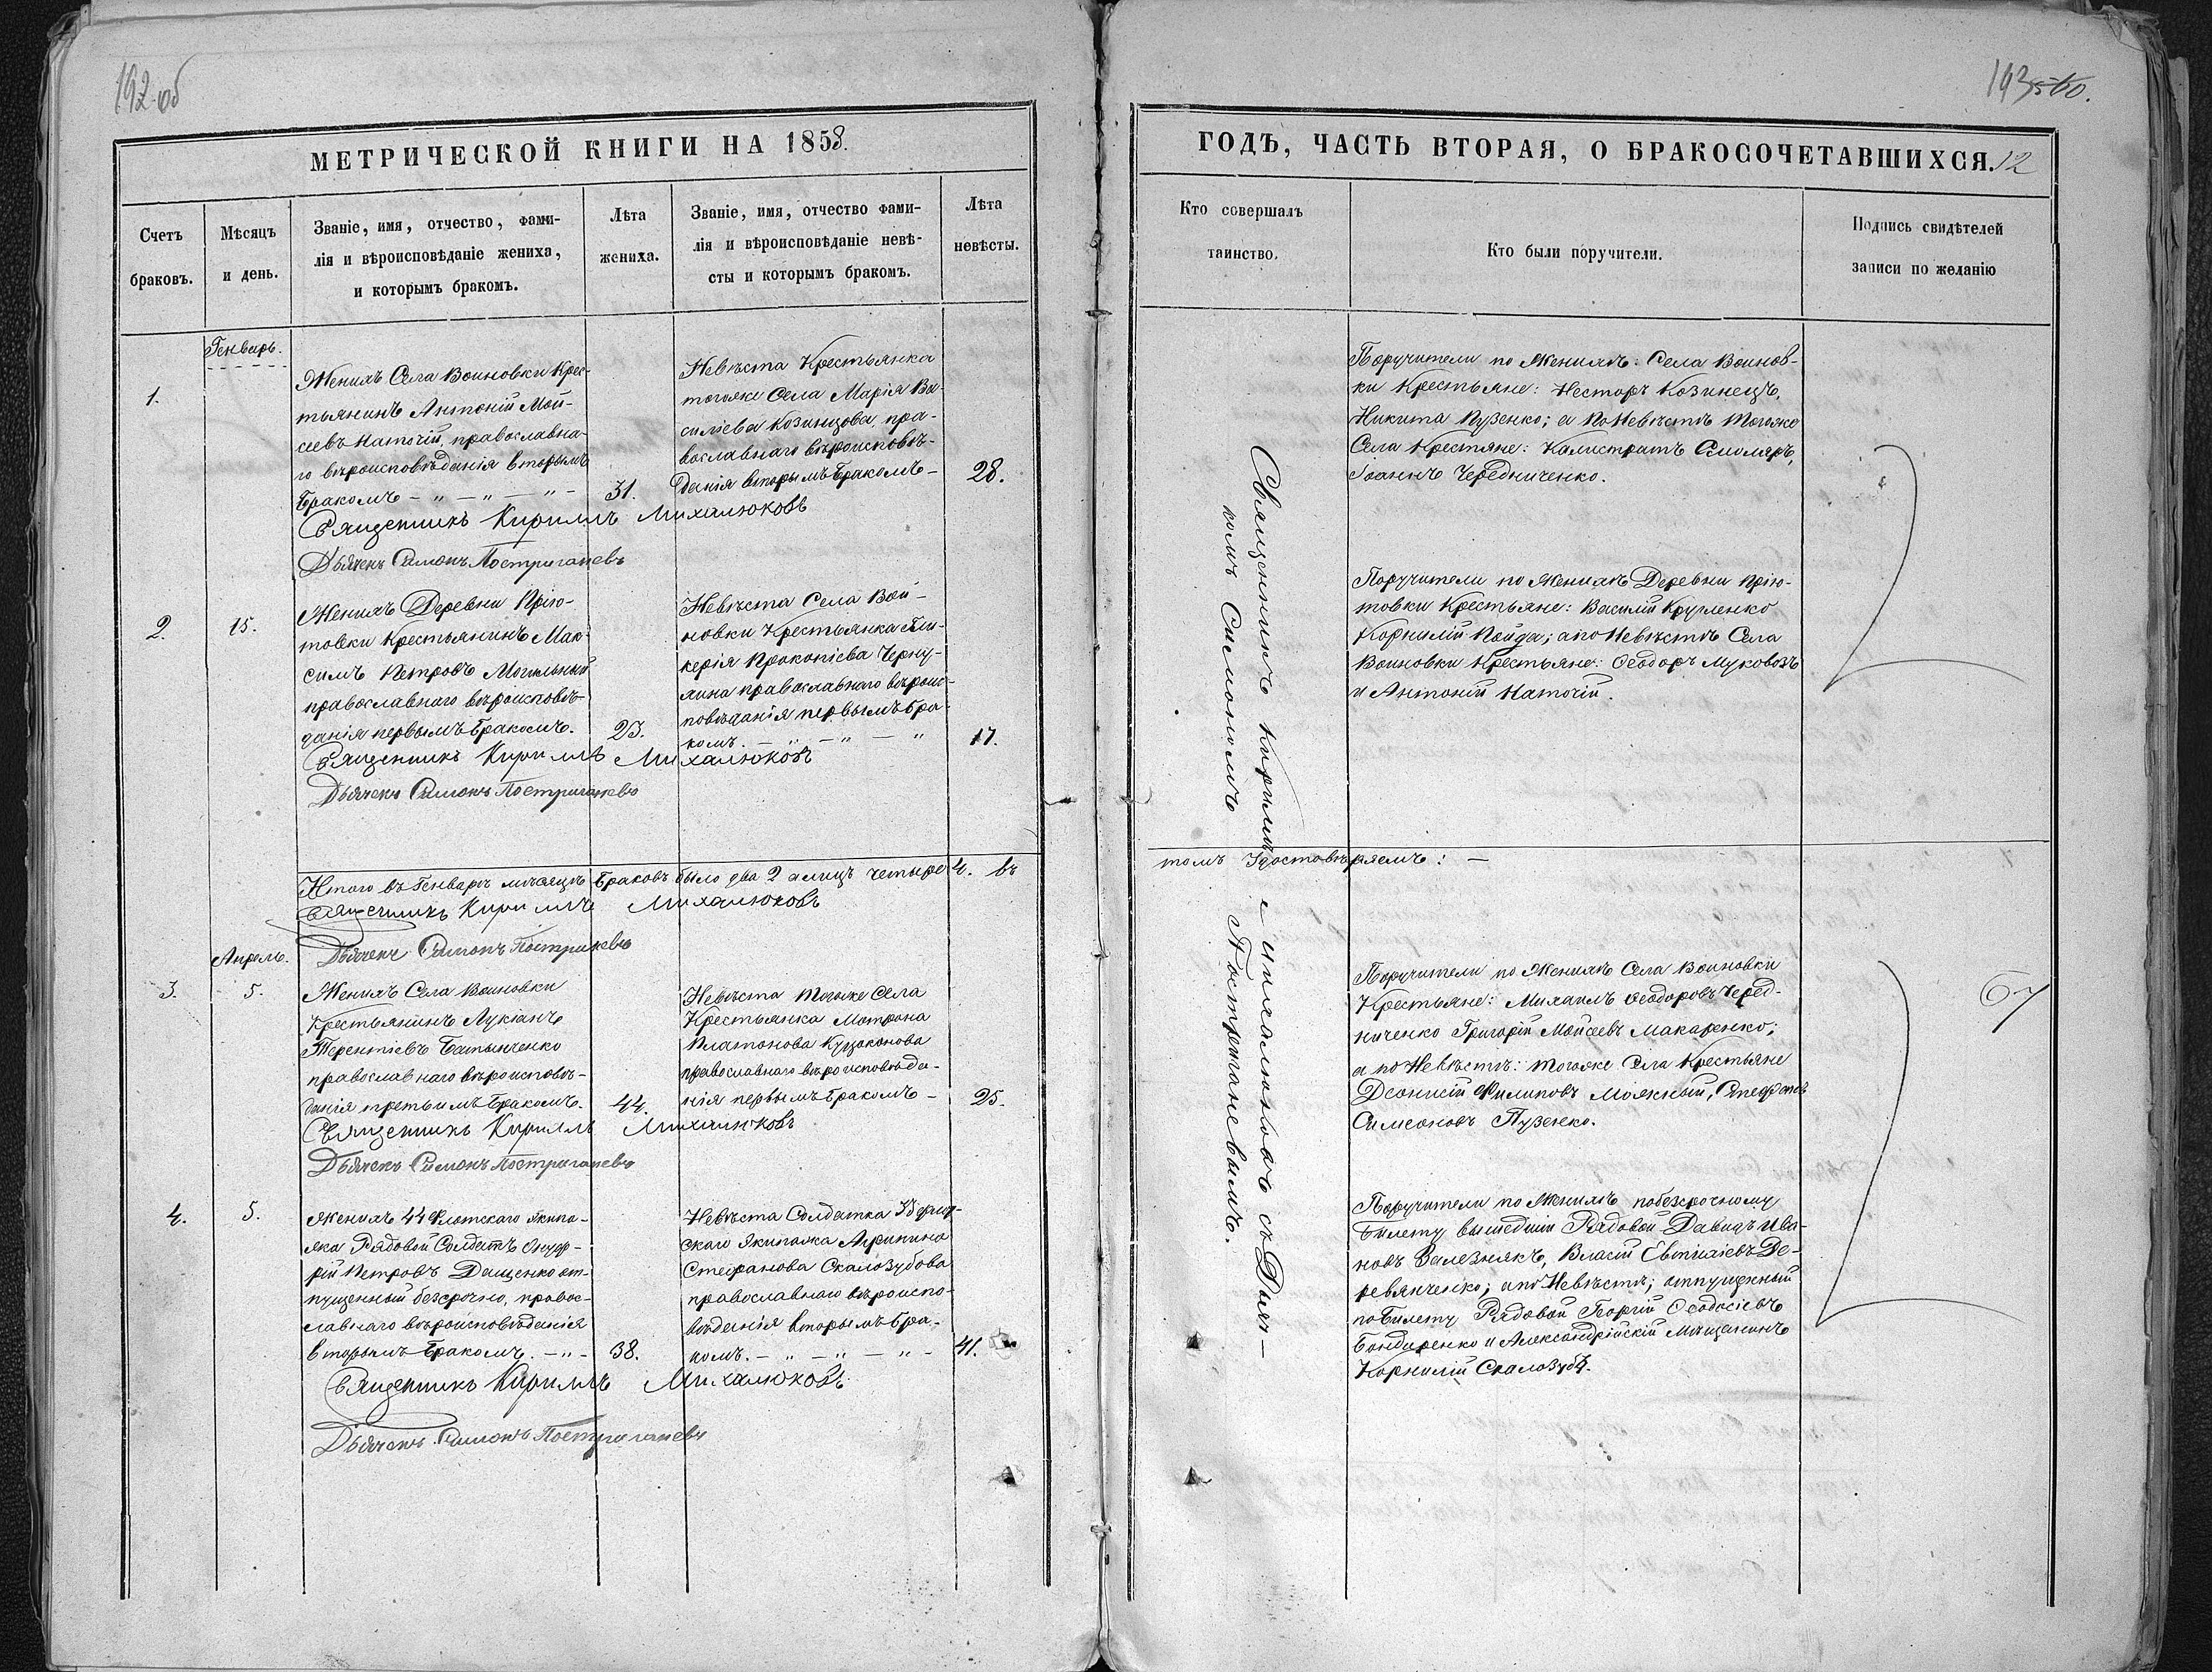 192 об
МЕТРИЧЕСКОЙ КНИГИ НА 1858.
Счетъ
браковъ.
Мѣсяцъ
и день.
Званіе, имя, отчество, фами-
лія и вѣроисповѣданіе жениха,
и которымъ бракомъ.
Лѣта
жениха.
Званіе, имя, отчество фами-
лія и вѣроисповѣданіе невѣ-
сты и которымъ бракомъ.
Лѣта
невѣсты.
Генварь.
1.
Женихъ Села Воиновки Крес-
тьянинъ Антоній Мой-
сеевъ Наточій, православна-
го вѣроисповѣданія вторымъ
Бракомъ - " - " - " -
31.
Невѣста Крестьянка
тогоже Села Марія Ва-
силіева Козинцова, пра-
вославнаго вѣроисповѣ-
данія вторымъ Бракомъ -
28.
Священникъ Кириллъ Михалюковъ
Дьячекъ Симонъ Постригачевъ
2.
15.
Женихъ Деревни Прію-
товки Крестьянинъ Мак-
симъ Петровъ Могильный
православнаго вѣроисповѣ-
данія первымъ Бракомъ.
23.
Невѣста Села Вой-
новки Крестьянка Гли-
керія Прокопіева Черну-
лина православнаго вѣроис-
повѣданія первымъ бра-
комъ. - " - " - "
17.
Священникъ Кириллъ Михалюковъ
Дьячекъ Симонъ Постригачевъ
Итого въ Генварѣ мѣсяцѣ Браковъ было два 2 а лицъ четыре 4. въ
Священникъ Кириллъ Михалюковъ
Дьячекъ Симонъ
Апрель.
3.
5.
Женихъ Села Воиновки
Крестьянинъ Лукіанъ
Терентіевъ
православнаго вѣроисповѣ-
данія третьимъ Бракомъ.
44.
Невѣста Тогоже Села
Крестьянка Мотрона
Платонова
православнаго вѣроисповѣда-
нія первымъ Бракомъ -
25.
Священникъ Кириллъ Михалюковъ
Дьячекъ Симонъ Постригачевъ
4.
5.
Женихъ 44 Флотскаго Якипа-
жа Рядовой Солдатъ Онуф-
рій Петровъ Дащенко от-
пущенный безсрочно, правос-
лавнаго вѣроисповѣданія
вторымъ Бракомъ. - " -
38.
Невѣста Солдатка
скаго Якипажа Агрипина
Стефанова Скалозубова
православнаго вѣроиспо-
вѣданія вторымъ Бра-
комъ. - " - " - " -
41.
Священникъ Кириллъ Михалюковъ
Дьячекъ Симонъ Постригачевъ
193
ГОДЪ, ЧАСТЬ ВТОРАЯ, О БРАКОСОЧЕТАВШИХСЯ. 12
Кто совершалъ
таинство.
Кто были поручители.
Подпись свидѣтелей
записи по желанію
Священникъ Кириллъ Михалюковъ съ Дьяч-
комъ Симономъ Постригачевымъ.
Поручители по Женихѣ: Села Воинов-
ки Крестьяне: Несторъ Козинецъ,
Никита Пузенко; а по Невѣстѣ Тогоже
Села Крестяне: Калистратъ Смоляръ,
Іоаннъ Чередниченко.
Поручители по Женихѣ Деревни Прію-
товки Крестьяне: Василій Кругленко
Корнилій Пойда; а по Невѣстѣ Села
Воиновки Крестьяне: Ѳеодоръ Муковозъ
и Антоній Наточій.
томъ Удостовѣряемъ: -
Поручители по Женихѣ Села Воиновки
Крестьяне: Михаилъ Ѳеодоровъ Черед-
ниченко Григорій Мойсеевъ Макаренко;
а по Невѣстѣ: тогоже Села Крестьяне
Деонисій Филиповъ Мояжный, Стефанъ
Симеоновъ Пузенко.
67
Поручители по Женихѣ побезсрочному
Билету вышедшіи Рядовой Давидъ Ива-
новъ Зализнякъ, Власій Евтихіевъ Де-
ревянченко; а по Невѣстѣ; отпущенный
по Билету Рядовой Георгій Ѳеодосіевъ
Бондаренко и Александрійскій Мѣщанинъ
Корнилій Скалозубъ.